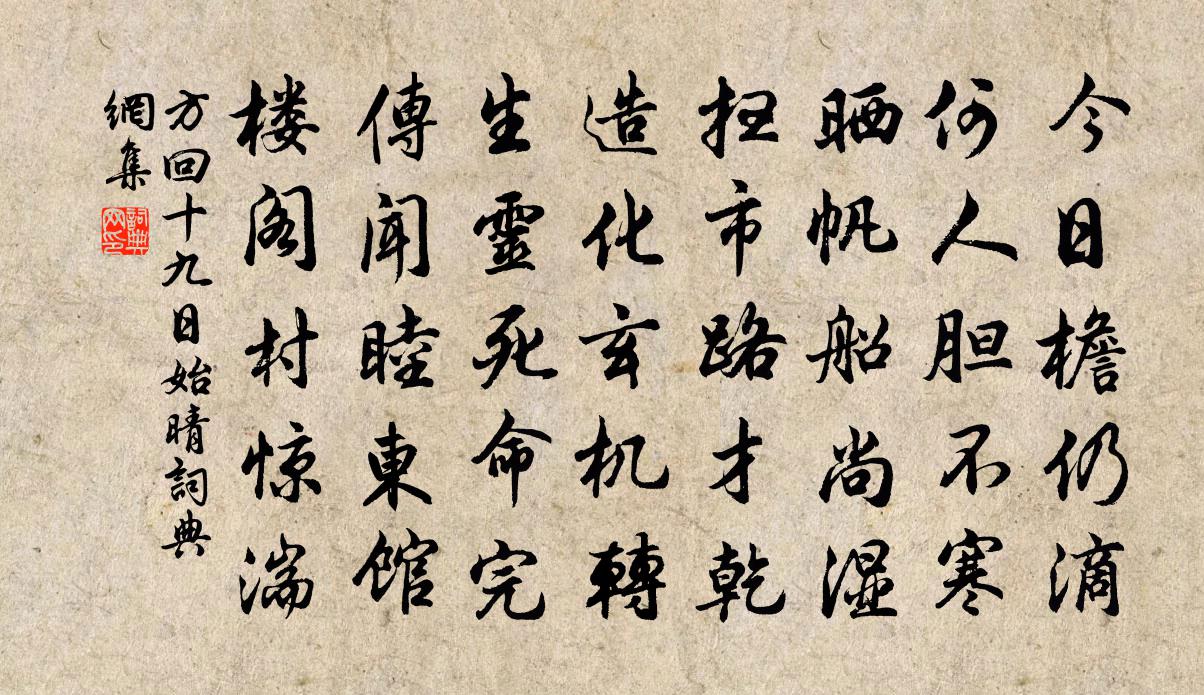 今日檐仍滴
何人胆不寒
晒帆船尚湿
扫市路才乾
造化玄机轉
生靈死命完
傳闻睦東馆
楼阁村惊湍
方回十九日始晴詞典
網集
詞典网印